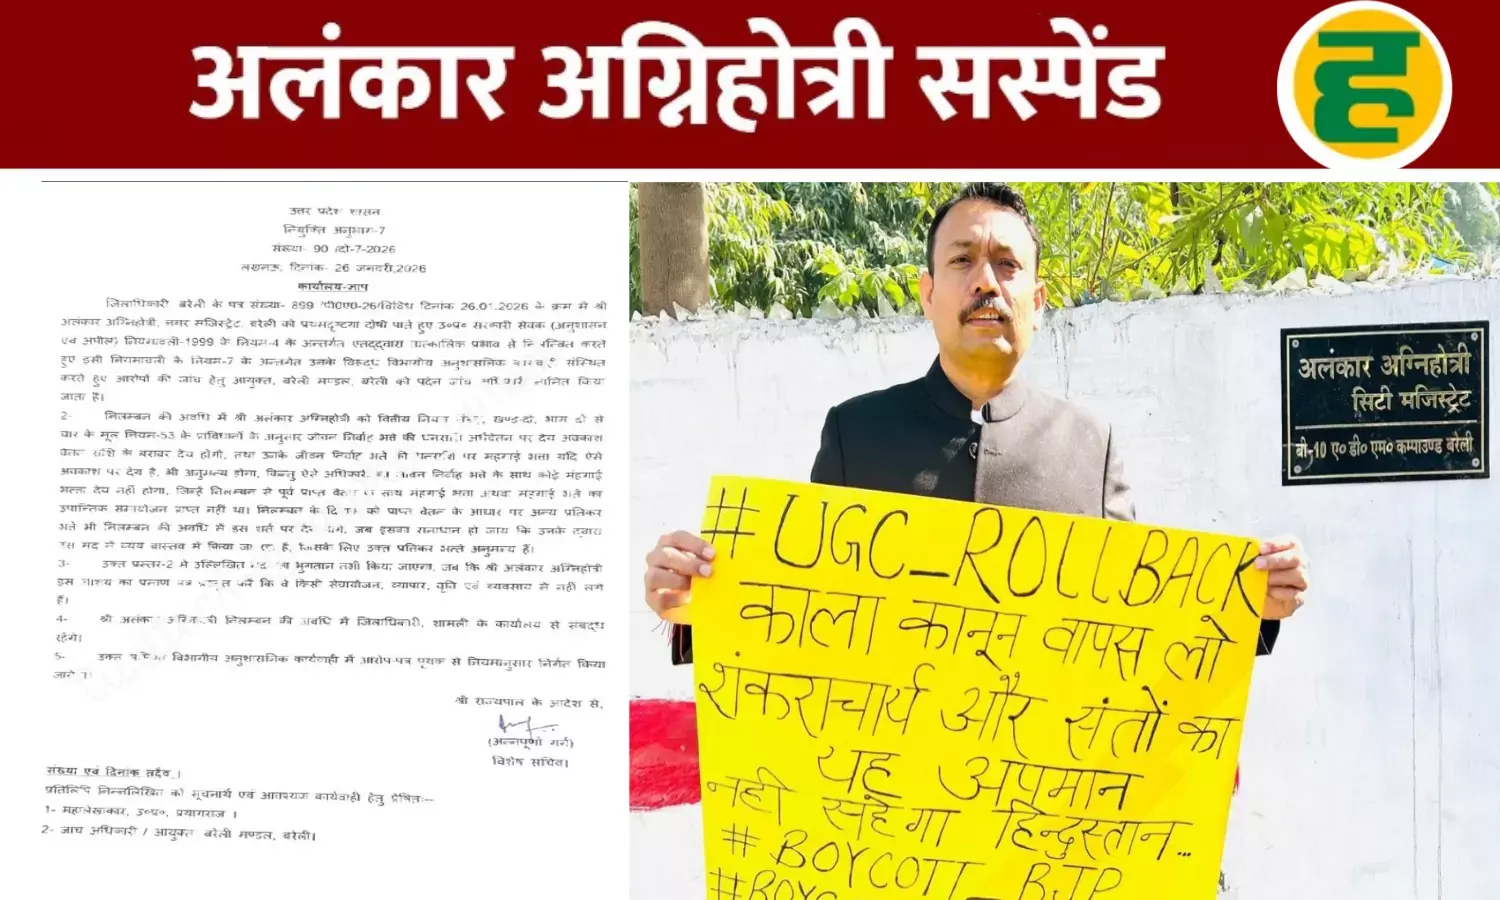 अलंकार अग्निहोत्री सस्पेंड
ह
उत्तर प्रदेश शासन
नियुक्ति अनुभाग-7
संख्या- 90 /दो-7-2026
लखनऊ, दिनांक- 26 जनवरी,2026
कार्यालय-ज्ञाप
जिलाधिकारी बरेली के पत्र संख्या- 899 /पी0ए0-26/विविध दिनांक 26.01.2026 के क्रम में श्री
अलंकार अग्निहोत्री, नगर मजिस्ट्रेट, बरेली को प्रथमदृष्टया दोषी पाते हुए उ०प्र० सरकारी सेवक (अनुशासन
एवं अपील) नियमावली-1999 के नियम-4 के अन्तर्गत एतद्द्वारा तात्कालिक प्रभाव से निलम्बित करते
हुए इसी नियमावली के नियम-7 के अन्तर्गत उनके विरूद्ध विभागीय अनुशासनिक संस्थित
करते हुए आरोपों की जांच हेतु आयुक्त, बरेली मण्डल, बरेली को पदेन जांच किया
जाता है।
2- निलम्बन की अवधि में श्री अलंकार अग्निहोत्री को वित्तीय नियम खण्ड-दो, भाग दो से
चार के मूल नियम-53 के प्राविधानों के अनुसार जीवन निर्वाह भत्ते की धनराशि अर्धवेतन पर देय अवकाश
वेतन राशि के बराबर देय होगी, तथा उनके जीवन निर्वाह भत्ते की धनराशि पर महंगाई भत्ता यदि ऐसे
अवकाश पर देय है, भी अनुमन्य होगा, किन्तु ऐसे अधिकारी जीवन निर्वाह भत्ते के साथ कोई महंगाई
भत्ता देय नहीं होगा, जिन्हें निलम्बन से पूर्व प्राप्त वेतन के साथ महंगाई भत्ता अथवा महंगाई भत्ते का
उपान्तिक समायोजन प्राप्त नहीं था। निलम्बन के दिनांक को प्राप्त वेतन के आधार पर अन्य प्रतिकर
भत्ते भी निलम्बन की अवधि में इस शर्त पर देय होंगे, जब इसका समाधान हो जाय कि उनके द्वारा
उस मद में व्यय वास्तव में किया जा रहा है, जिसके लिए उक्त प्रतिकर भत्ते अनुमन्य हैं।
3- उक्त प्रस्तर-2 में उल्लिखित का भुगतान तभी किया जाएगा, जब कि श्री अलंकार अग्निहोत्री
इस आशय का प्रमाण पत्र प्रस्तुत करें कि वे किसी सेवायोजन, व्यापार, वृत्ति एवं व्यवसाय में नहीं लगे
हैं।
4- श्री अलंकार अग्निहोत्री निलम्बन की अवधि में जिलाधिकारी, शामली के कार्यालय से संबद्ध
रहेंगे।
5- उक्त विभागीय अनुशासनिक कार्यवाही में आरोप-पत्र पृथक से नियमानुसार निर्गत किया
जाएगा।
श्री राज्यपाल के आदेश से,
(अन्नपूर्णा गर्ग)
विशेष सचिव।
संख्या एवं दिनांक तदैव।
प्रतिलिपि निम्नलिखित को सूचनार्थ एवं आवश्यक कार्यवाही हेतु प्रेषित:--
1- महालेखाकार, उ०प्र०, प्रयागराज।
2- जांच अधिकारी / आयुक्त बरेली मण्डल, बरेली।
अलंकार अग्निहोत्री
सिटी मजिस्ट्रेट
बी-10 ए० डी० एम० कम्पाउण्ड बरेली
#UGC_ROLLBACK
काला कानून वापस लो
शंकराचार्य और संतों का
यह अपमान
नहीं सहेगा हिन्दुस्तान...
#BOYCOTT_BJP
#BOYC